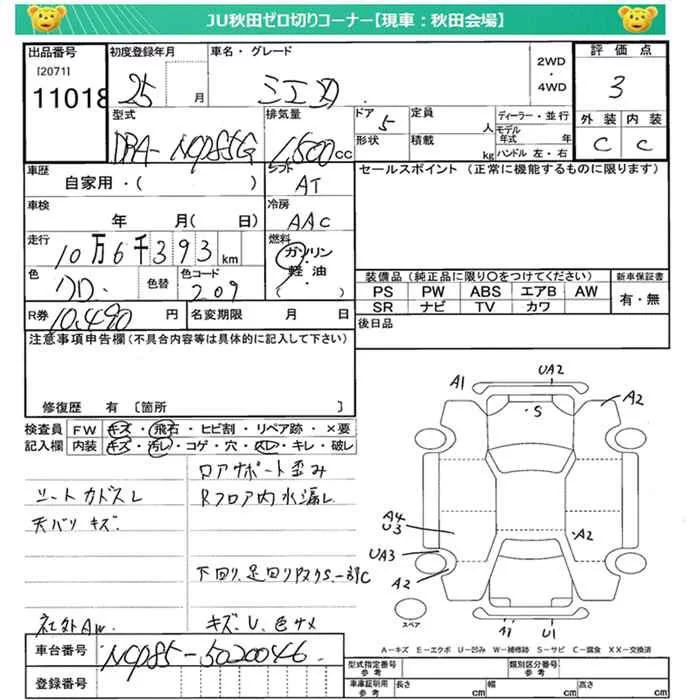 JU秋田ゼロ切りコーナー【現車：秋田会場】
出品番号
[2071]
11018
初度登録年月
25 月
車名・グレード
シエンタ
2WD
・
4WD
評価点
3
外装 内装
C C
型式
DBA-NCP85G
排気量
1,500cc
ドア
5
形状
定員
人
積載
kg
ディーラー・並行
モデル年式 年
ハンドル 左・右
車歴
自家用・( )
シフト
AT
セールスポイント (正常に機能するものに限ります)
車検
年 月( 日)
冷房
AAC
走行
10万6千393km
燃料
ガソリン
・
軽油
( )
色
クロ
色替
色コード
209
装備品 (純正品に限り〇をつけてください)
PS PW ABS エアB AW
SR ナビ TV カワ
新車保証書
有・無
R券
10,490円
名変期限 月 日
後日品
注意事項申告欄 (不具合内容等は具体的に記入して下さい)
修復歴 有〔箇所 〕
検査員記入欄
FW キズ・飛石・ヒビ割・リペア跡・×要
内装 キズ・汚レ・コゲ・穴・スレ・キレ・破レ
ロアサポート歪み
シートカドスレ
Rフロア内水漏レ
天バリキズ
下回り、足回りサビS一部C
社外AW
キズ、U、色サメ
車台番号
NCP85-5020046
登録番号
UA2
A1
S
A2
A4
U3
A2
UA3
A2
スペア
U1
A-キズ E-エクボ U-凹み W-補修跡 S-サビ C-腐食 XX-交換済
型式指定番号
参考
類別区分番号
参考
車庫証明用
参考
長さ cm 幅 cm 高さ cm